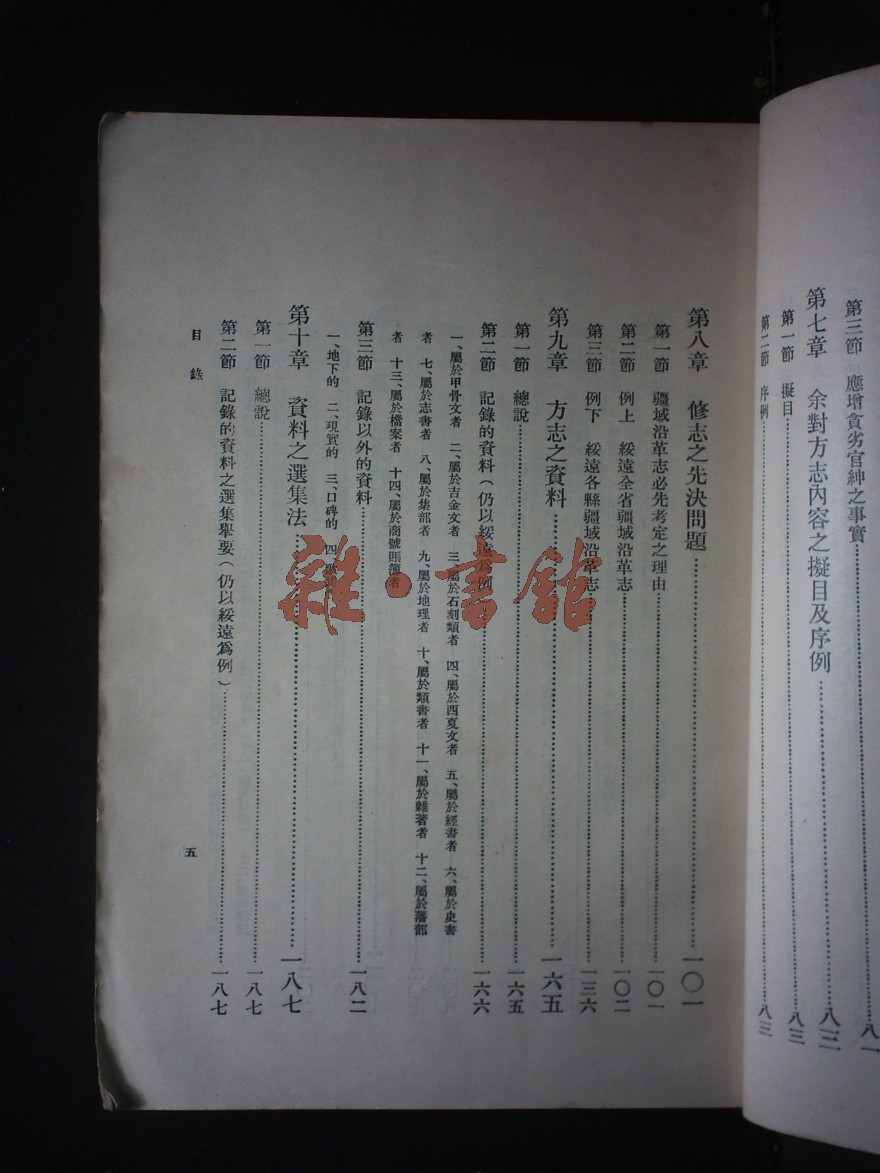 第三節 應增貪劣官紳之事實……八一
第七章 余對方志內容之擬目及序例……八三
第一節 擬目……八三
第二節 序例……八三
第八章 修志之先決問題……一〇一
第一節 疆域沿革志必先考定之理由……一〇一
第二節 例上 綏遠全省疆域沿革志……一〇二
第三節 例下 綏遠各縣疆域沿革志……一三六
第九章 方志之資料……一六五
第一節 總說……一六五
第二節 記錄的資料(仍以綏遠為例)……一六六
一、屬於甲骨文者 二、屬於吉金文者 三、屬於石刻類者 四、屬於西夏文者 五、屬於經書者 六、屬於史書
者 七、屬於志書者 八、屬於集部者 九、屬於地理者 十、屬於類書者 十一、屬於雜著者 十二、屬於藩部
者 十三、屬於檔案者 十四、屬於商號賬簿者
第三節 記錄以外的資料……一八二
一、地下的 二、現實的 三、口碑的 四、
第十章 資料之選集法……一八七
第一節 總說……一八七
第二節 記錄的資料之選集舉要(仍以綏遠爲例)……一八七
目錄
五
雜·書館